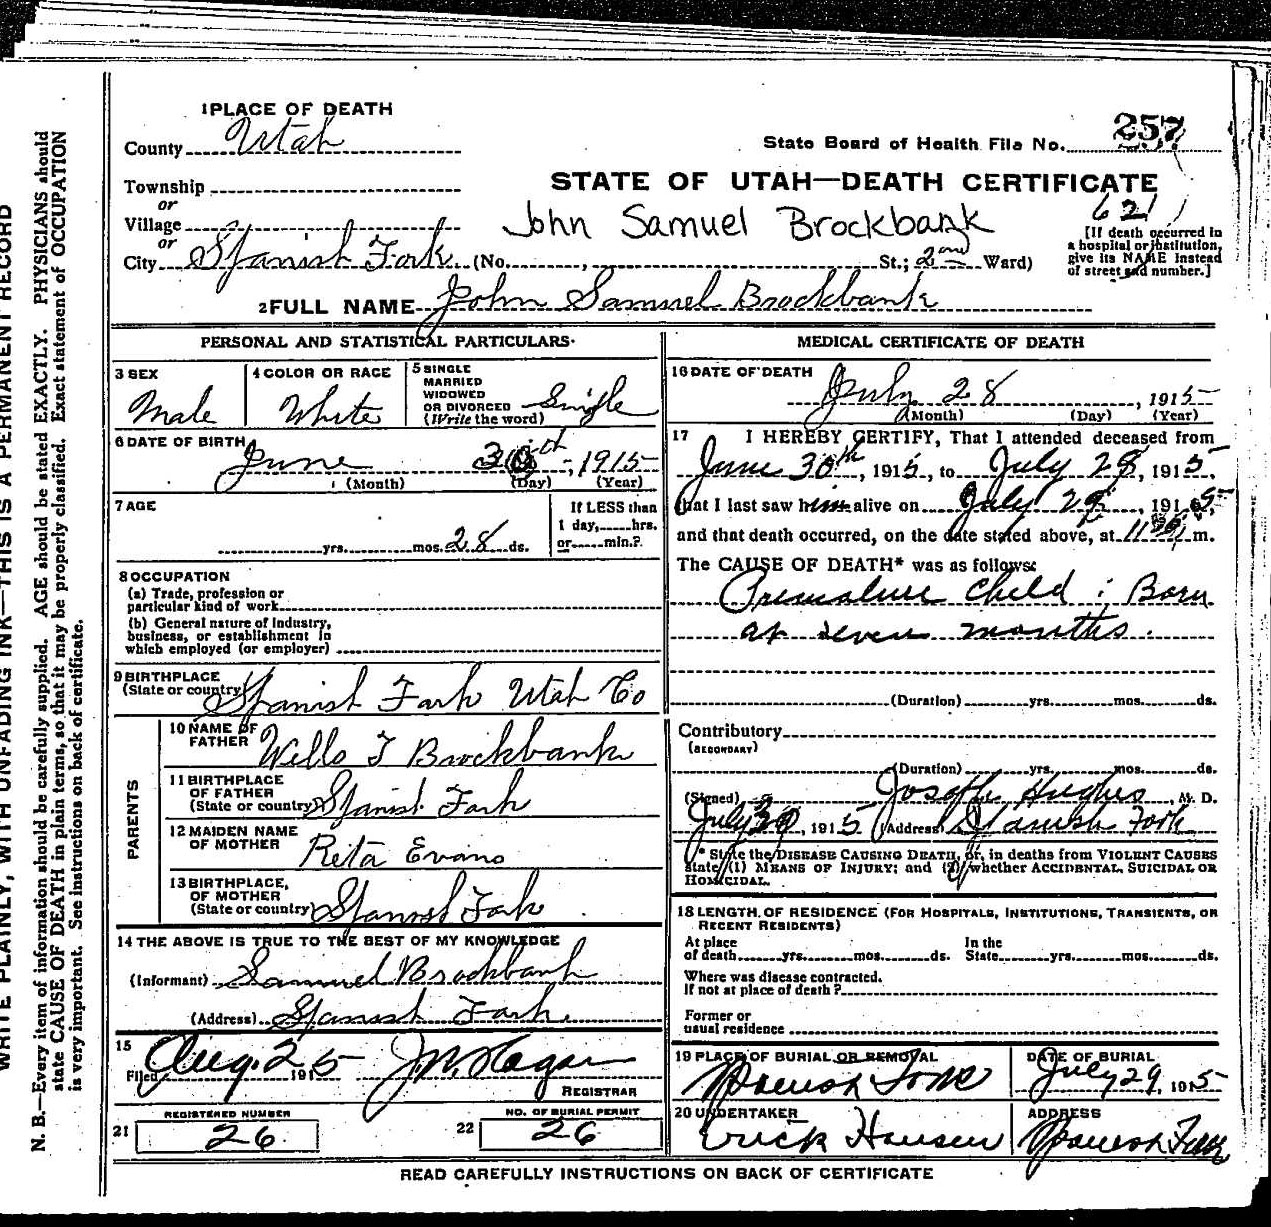 WRITE PLAINLY, WITH UNFADING INK—THIS IS A PERMANENT RECORD
N. B.—Every item of information should be carefully supplied. AGE should be stated EXACTLY. PHYSICIANS should
state CAUSE OF DEATH in plain terms, so that it may be properly classified. Exact statement of OCCUPATION
is very important. See instructions on back of certificate.
1 PLACE OF DEATH
County Utah
State Board of Health File No. 257
Township
or
STATE OF UTAH—DEATH CERTIFICATE
621
Village
or
John Samuel Brockbank
[If death occurred in
a hospital or institution,
give its NAME instead
of street and number.]
City Spanish Fork (No. , St.; 2nd Ward)
2 FULL NAME John Samuel Brockbank
PERSONAL AND STATISTICAL PARTICULARS
3 SEX
Male
4 COLOR OR RACE
White
5 SINGLE
MARRIED
WIDOWED
OR DIVORCED
(Write the word)
Single
6 DATE OF BIRTH
June 30th, 1915
(Month) (Day) (Year)
7 AGE
yrs. mos. 28 ds.
If LESS than
1 day, hrs.
or min.?
8 OCCUPATION
(a) Trade, profession or
particular kind of work
(b) General nature of industry,
business, or establishment in
which employed (or employer)
9 BIRTHPLACE
(State or country) Spanish Fork Utah Co
PARENTS
10 NAME OF
FATHER Wells T Brockbank
11 BIRTHPLACE
OF FATHER
(State or country) Spanish Fork
12 MAIDEN NAME
OF MOTHER Reta Evans
13 BIRTHPLACE,
OF MOTHER
(State or country) Spanish Fork
14 THE ABOVE IS TRUE TO THE BEST OF MY KNOWLEDGE
(Informant) Samuel Brockbank
(Address) Spanish Fork.
15
Filed Aug. 2 1915
REGISTRAR
REGISTERED NUMBER
21 26
NO. OF BURIAL PERMIT
22 26
MEDICAL CERTIFICATE OF DEATH
16 DATE OF DEATH
July 28, 1915
(Month) (Day) (Year)
17 I HEREBY CERTIFY, That I attended deceased from
June 30th, 1915, to July 28, 1915,
that I last saw him alive on July 28, 1915,
and that death occurred, on the date stated above, at m.
The CAUSE OF DEATH* was as follows:
Premature child : Born
at seven months.
(Duration) yrs. mos. ds.
Contributory
(SECONDARY)
(Duration) yrs. mos. ds.
(Signed) Joseph Hughes, M. D.
July 30, 1915 (Address) Spanish Fork
* State the DISEASE CAUSING DEATH, or, in deaths from VIOLENT CAUSES
state (1) MEANS OF INJURY; and (2) whether ACCIDENTAL, SUICIDAL OR
HOMICIDAL.
18 LENGTH OF RESIDENCE (FOR HOSPITALS, INSTITUTIONS, TRANSIENTS, OR
RECENT RESIDENTS)
At place
of death yrs. mos. ds.
In the
State yrs. mos. ds.
Where was disease contracted.
If not at place of death?
Former or
usual residence
19 PLACE OF BURIAL OR REMOVAL
Spanish Fork
DATE OF BURIAL
July 29, 1915
20 UNDERTAKER
Erick Hansen
ADDRESS
Spanish Fork
READ CAREFULLY INSTRUCTIONS ON BACK OF CERTIFICATE